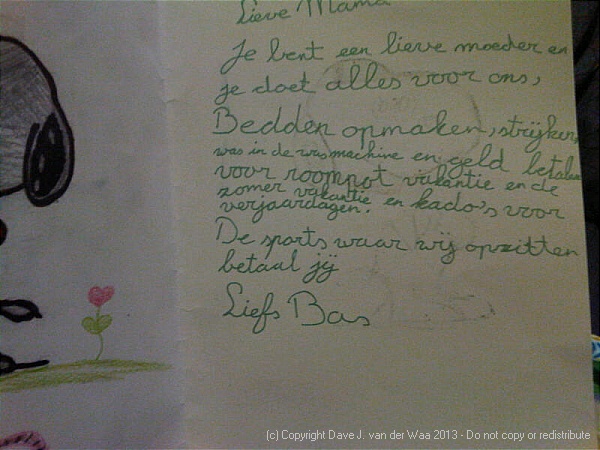 Lieve Mama
Je bent een lieve moeder en
je doet alles voor ons,
Bedden opmaken, strijken,
was in de wasmachine en geld betalen
voor roompot vakantie en de
zomer vakantie en kado's voor
verjaardagen.
De sports waar wij opzitten
betaal jij
Liefs Bas
(c) Copyright Dave J. van der Waa 2013 - Do not copy or redistribute